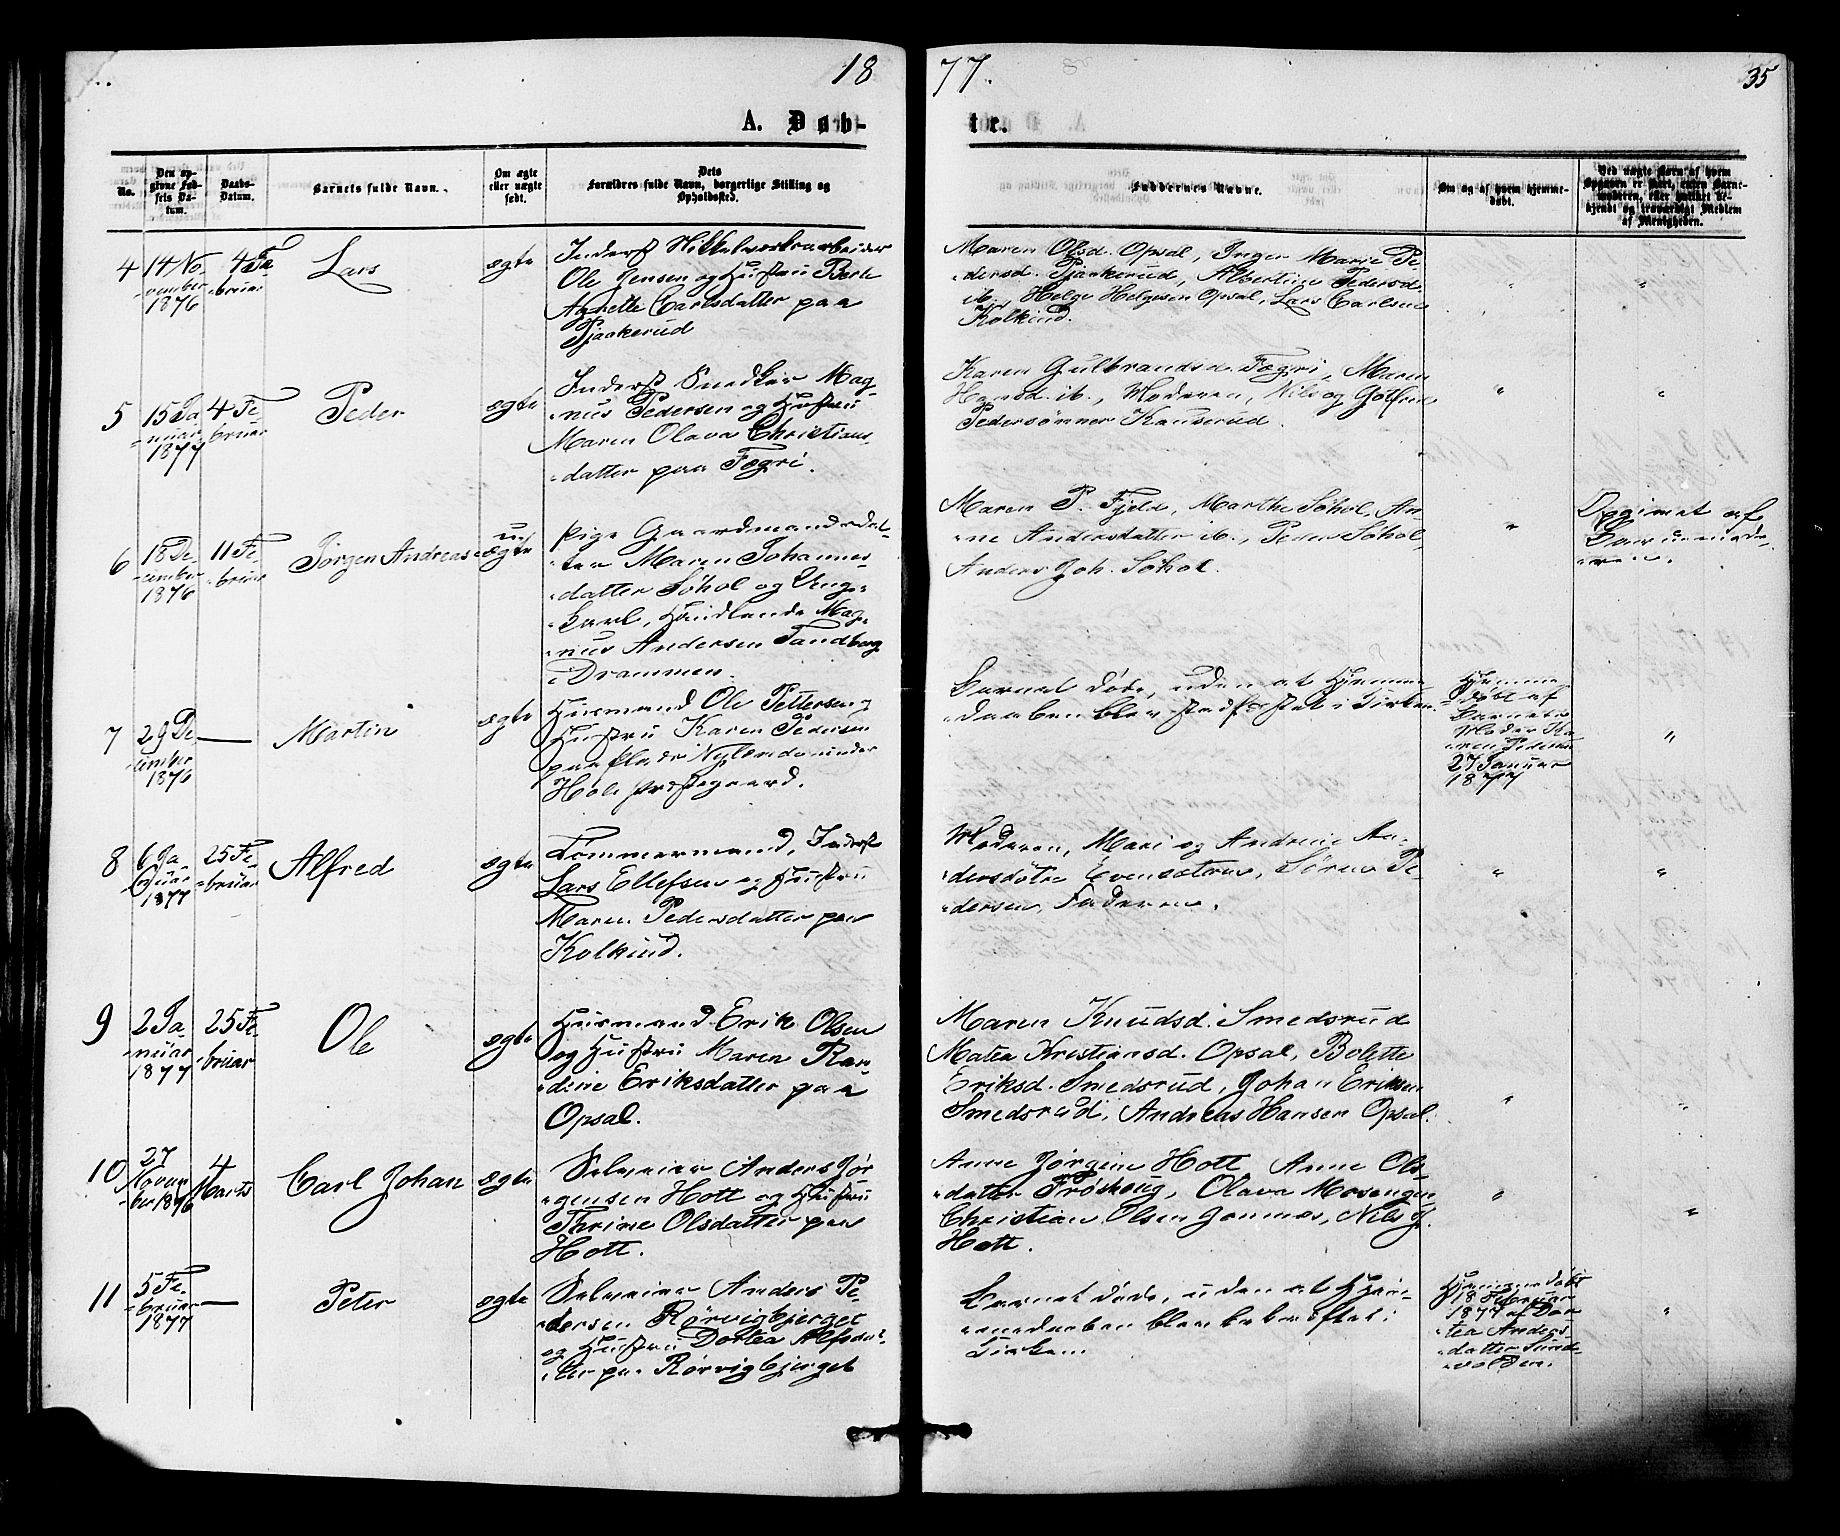 1877.
35
A. Døbte.
No.
Den opgivne Fødsels Datum.
Daabs-Datum.
Barnets fulde Navn.
Om ægte eller uægte født.
Dets Forældres fulde Navn, borgerlige Stilling og Opholdssted.
Faddernes Navne.
Om og af hvem hjemmedøbt.
Ved uægte Børn af hvem Opgaven er skeet, enten Barnemoderen, eller hvilket bekjendt og troværdigt Medlem af Menigheden.
4
14 No-
vember
1876
4 Fe
bruar
Lars
ægte
Inderst Nikkelverksarbeider
Ole Jensen og Hustru Berte
Agnette Carlsdatter paa
Pjaakerud
Maren Olsd. Opsal, Inger Marie Pe-
dersd. Pjaakerud, Albertine Pedersd
ib., Helge Helgesen Opsal, Lars Carlsen
Kolkind.
"
"
5
15 Ja
nuar
1877
4 Fe
bruar
Peder
ægte
Inderst Snedker Mag-
nus Pedersen og Hustru
Maren Olava Christians-
datter paa Fægri.
Karen Gulbrandsd. Fægri, Maren
Hansd. ib., Moderen, Nils og
Pedersønner
"
"
6
18 De-
cember
1876
11 Fe-
bruar
Jørgen Andreas
u-
ægte
Pige Gaardmandsdat-
ter Maren Johannes-
datter Søhol og Unge-
karl, Handlende Mag-
nus Andersen Sandberg
Drammen.
Maren P. Fjeld, Marthe Søhol, An-
ne Andersdatter ib., Peder Søhol,
Anders Joh. Søhol.
"
Opgivet af
Barnemode-
ren.
7
29 De-
cember
1876
—
Martin
ægte
Husmand Ole Pettersen og
Hustru Karen Pedersen
paa Pladsen Nylænde under
Hole Præstegaard.
Barnet døde, uden at Hjemme-
daaben blev stadfæstet i Kirken.
Hjemme-
døbt af
Barnets
Moder Ka-
ren Pedersen
27 Januar
1877
"
8
6 Ja-
nuar
1877
25 Fe-
bruar
Alfred
ægte
Tømmermand, Inderst
Lars Ellefsen og Hustru
Maren Pedersdatter paa
Kolkind.
Moderen, Mari og Andrine An-
dersdøtre Evensætren, Søren Pe-
dersen, Faderen.
"
"
9
2 Ja-
nuar
1877
25 Fe
bruar
Ole
ægte
Husmand Erik Olsen
og Hustru Maren Ran-
dine Eriksdatter paa
Opsal.
Maren Knudsd. Smedsrud
Matea Kristiansd. Opsal, Bolette
Eriksd. Smedsrud, Johan Eriksen
Smedsrud, Andreas Hansen Opsal.
"
"
10
27
Novem
ber 1876
4
Marts
Carl Johan
ægte
Selveier Anders Jør
gensen Hott og Hustru
Thrine Olsdatter paa
Hott.
Anne Jørgine Hott, Anne Ols-
datter Frøshoug, Olava Mosengen
Christian Olsen Gommæs, Nils J.
Hott.
"
"
11
5 Fe-
bruar
1877
—
Peter
ægte
Selveier Anders Pe-
dersen Rørvigbjerget
og Hustru Dortea Alfsdat-
ter paa Rørvigbjerget
Barnet døde, uden at Hjem-
medaaben blev bekræftet i
Kirken.
Hjemmedøbt
18 Februar
1877 af Dor-
tea Anders-
datter Sund-
volden.
"